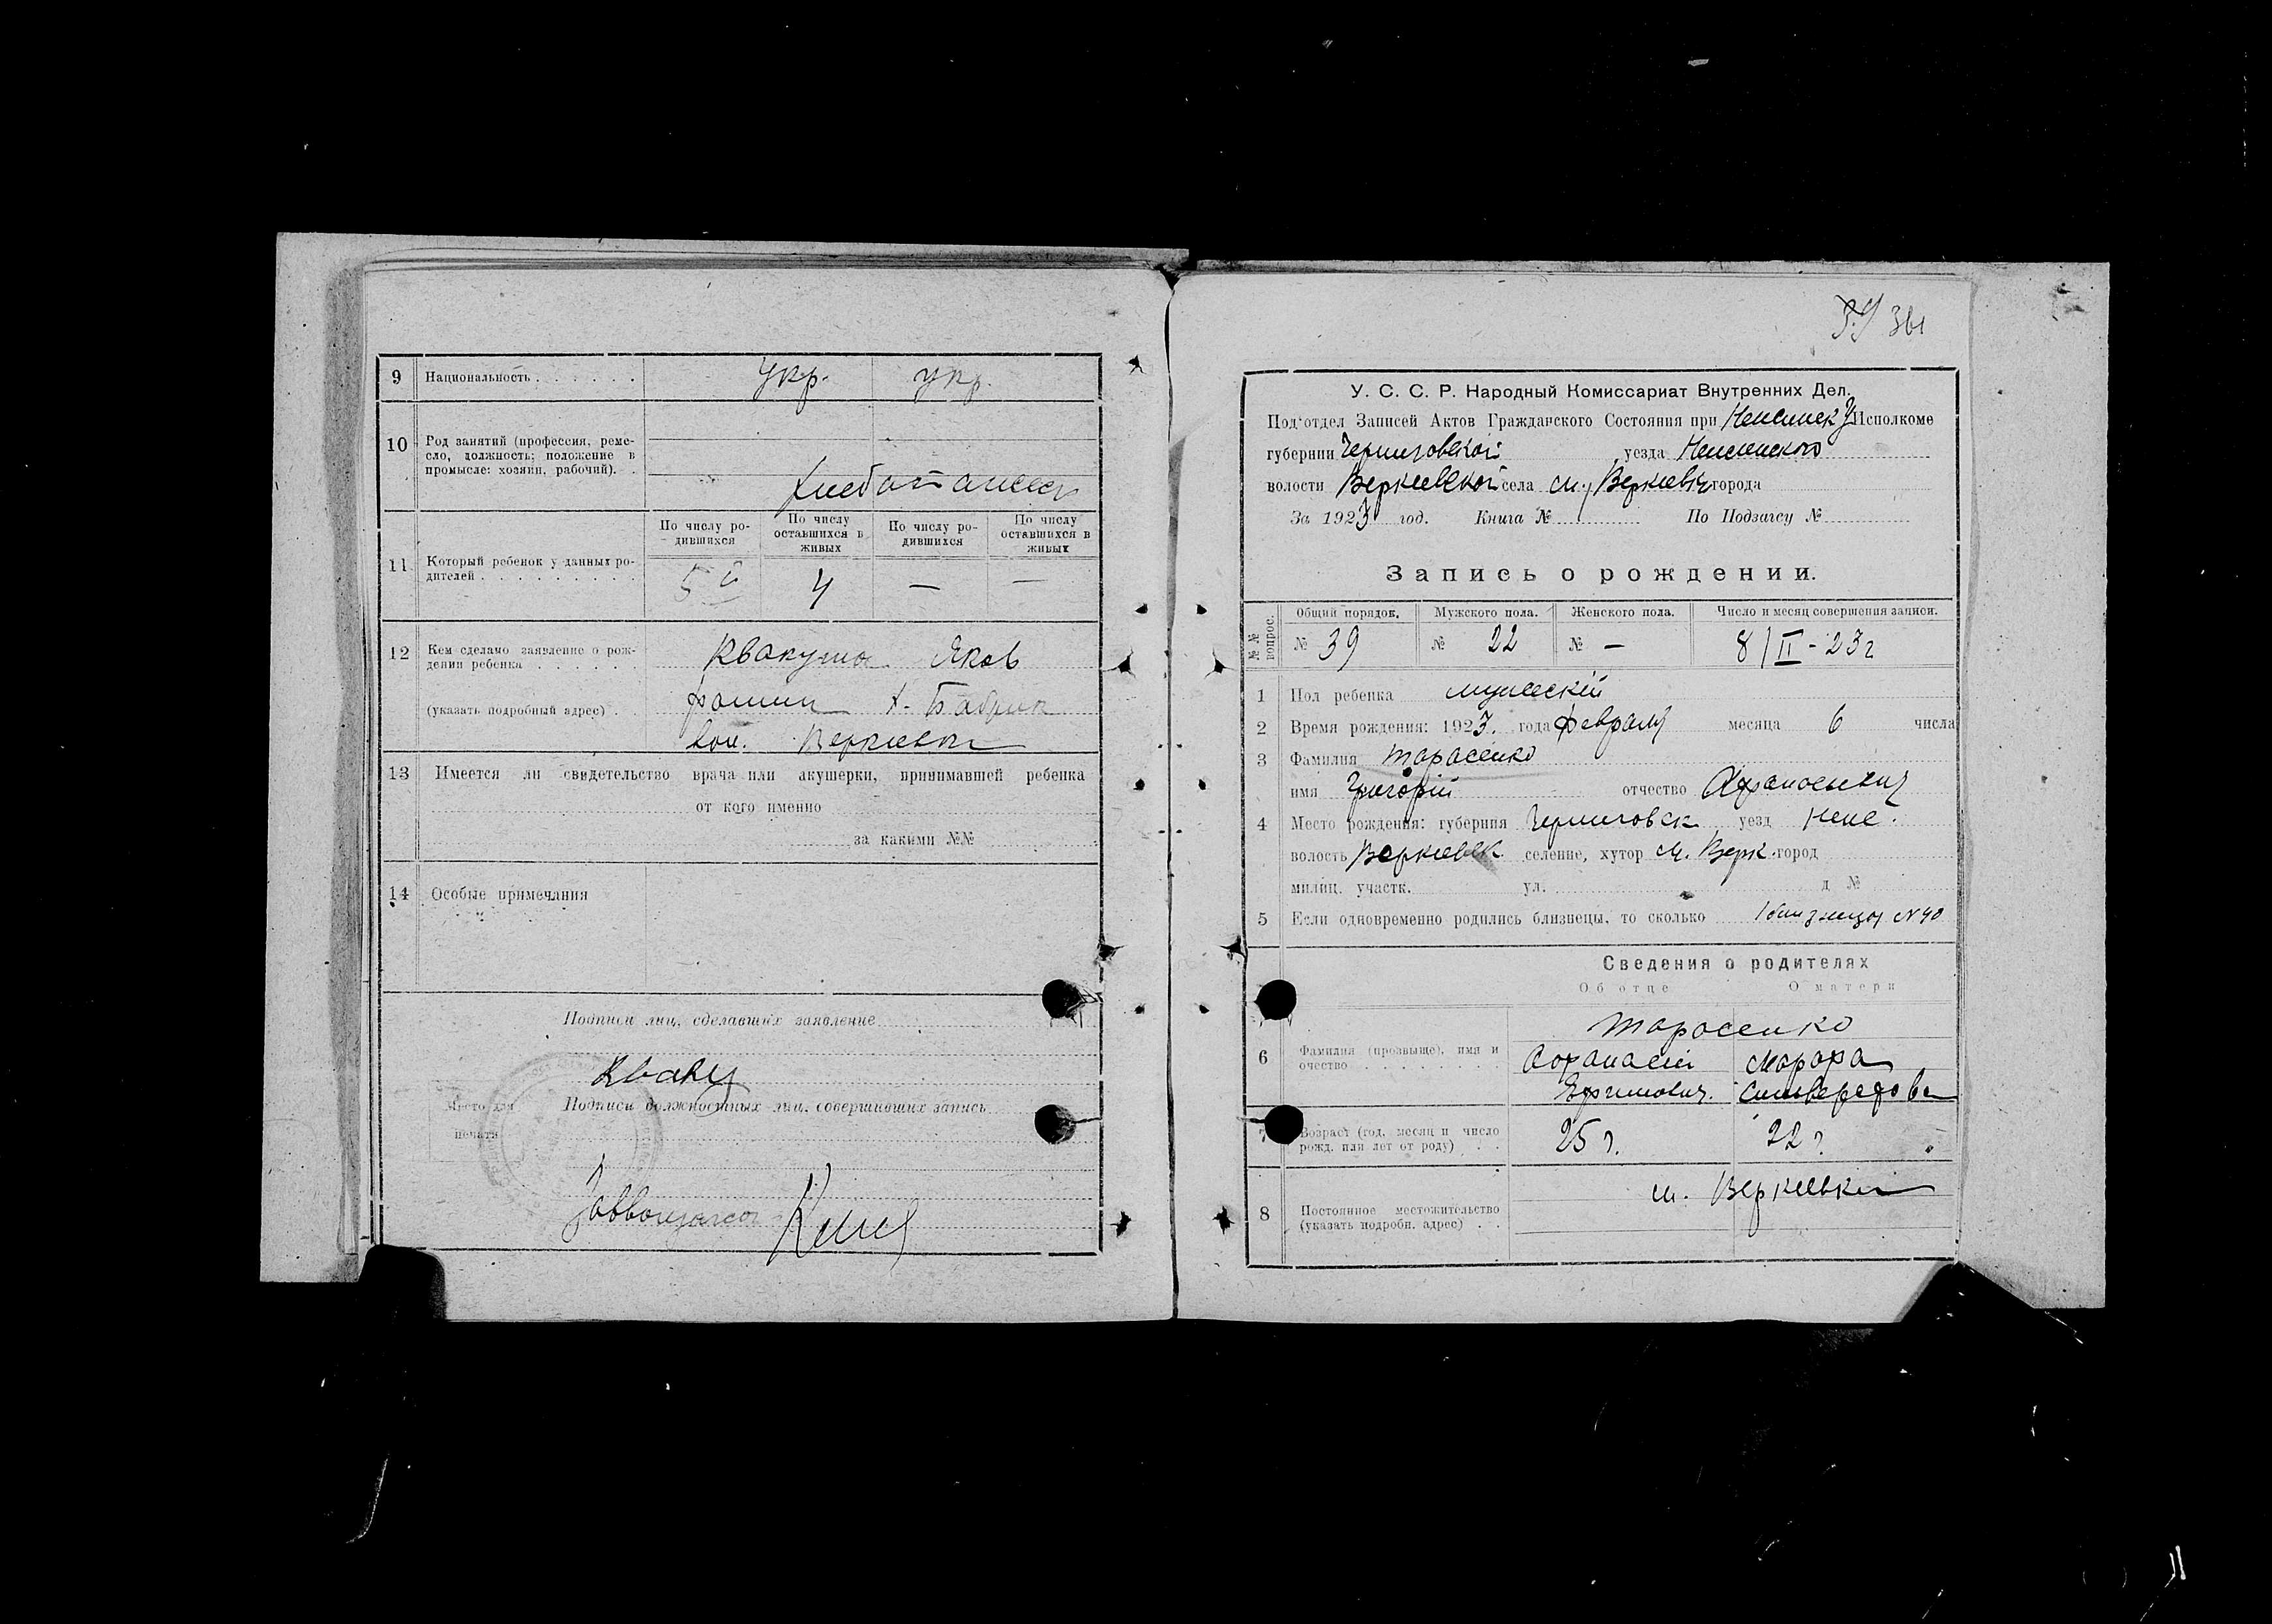 9 Национальность . . . . . . Укр. укр.
10 Род занятий (профессия, реме-
сло, должность; положение в
промысле: хозяин, рабочий). .
хлебопашец
11 Который ребенок у данных ро-
дителей . . . . . . . . .
По числу ро-
дившихся
По числу
оставшихся в
живых
По числу ро-
дившихся
По числу
оставшихся в
живых
5й 4 — —
12 Кем сделано заявление о рож-
дении ребенка . . . . . .
Квакуша Яков
(указать подробный адрес) . .
х.
вол. Веркиевки
13 Имеется ли свидетельство врача или акушерки, принимавшей ребенка
от кого именно
за какими №№
14 Особые примечания
Подписи лиц, сделавших заявление
Кваку
Место для
печати
Подписи должностных лиц, совершивших запись
361
У. С. С. Р. Народный Комиссариат Внутренних Дел.
Под'отдел Записей Актов Гражданского Состояния при Исполкоме
губернии Черниговской уезда Неженского
волости Веркиевской села м. Веркиевки города
За 1923 год. Книга № По Подзагсу №
Запись о рождении.
№№ вопрос.
Общий порядок. Мужского пола. Женского пола. Число и месяц совершения записи.
№ 39 № 22 № — 8/II - 23 г
1 Пол ребенка мужеский
2 Время рождения: 1923. года февраля месяца 6 числа
3 Фамилия Тарасенко
имя Григорій отчество Афанасьевич
4 Место рождения: губерния Черниговск уезд Неже.
волость Веркиевск. селение, хутор м. Верк. город
милиц. участк. ул. д №
5 Если одновременно родились близнецы, то сколько близнецы №40
Сведения о родителях
Об отце О матери
Тарасенко
6 Фамилия (прозвище), имя и
очество . . . . . . . .
Афанасий Марфа
Ефимович. Сильверстова
7 Возраст (год, месяц и число
рожд. или лет от роду) . .
25 г. 22 г.
м. Веркиевки
8 Постоянное местожительство
(указать подробн. адрес) . .